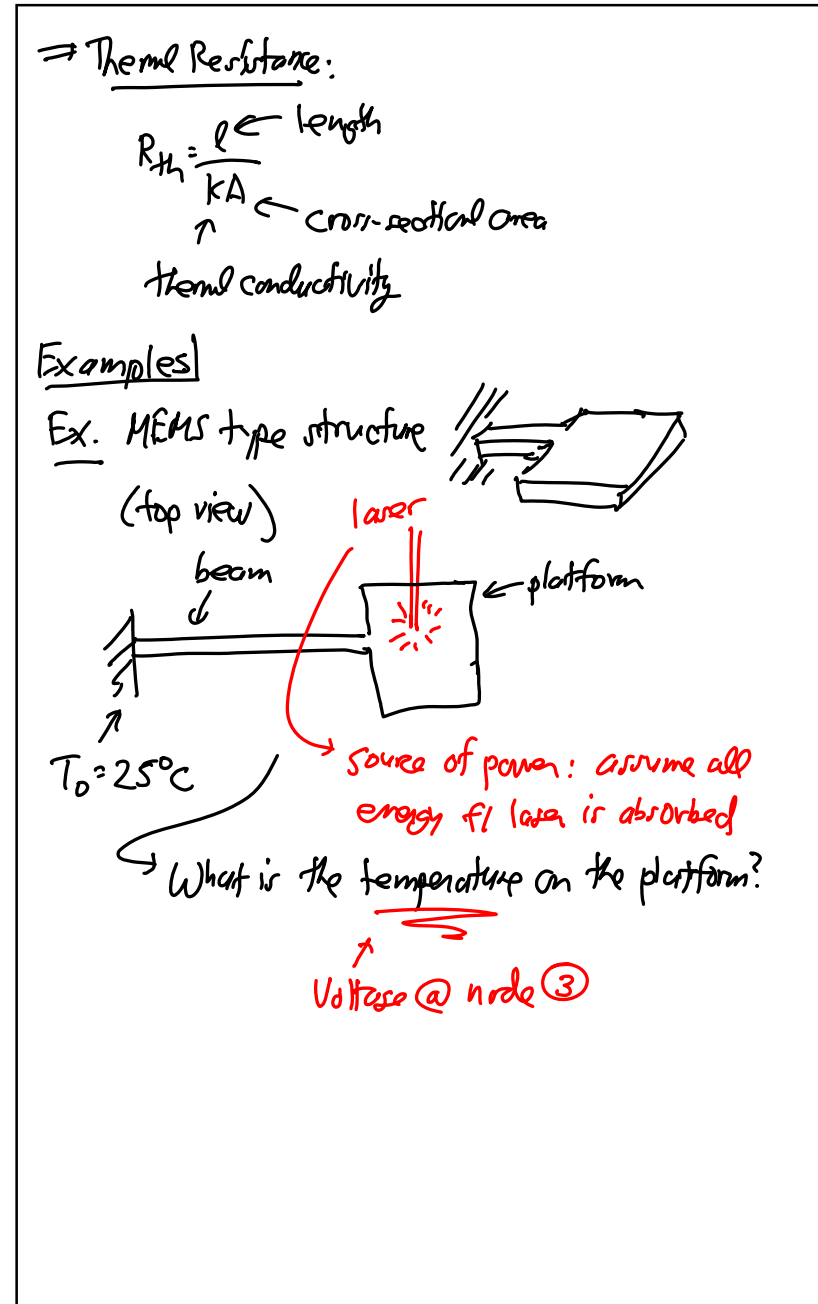 ⇒ Thermal Resistance:
R_th = l / kA
← length
← cross-sectional area
thermal conductivity
Examples
Ex. MEMS type structure
(top view)
laser
beam
← platform
T₀ = 25°C
source of power: assume all
energy f/ laser is absorbed
What is the temperature on the platform?
Voltage @ node ③